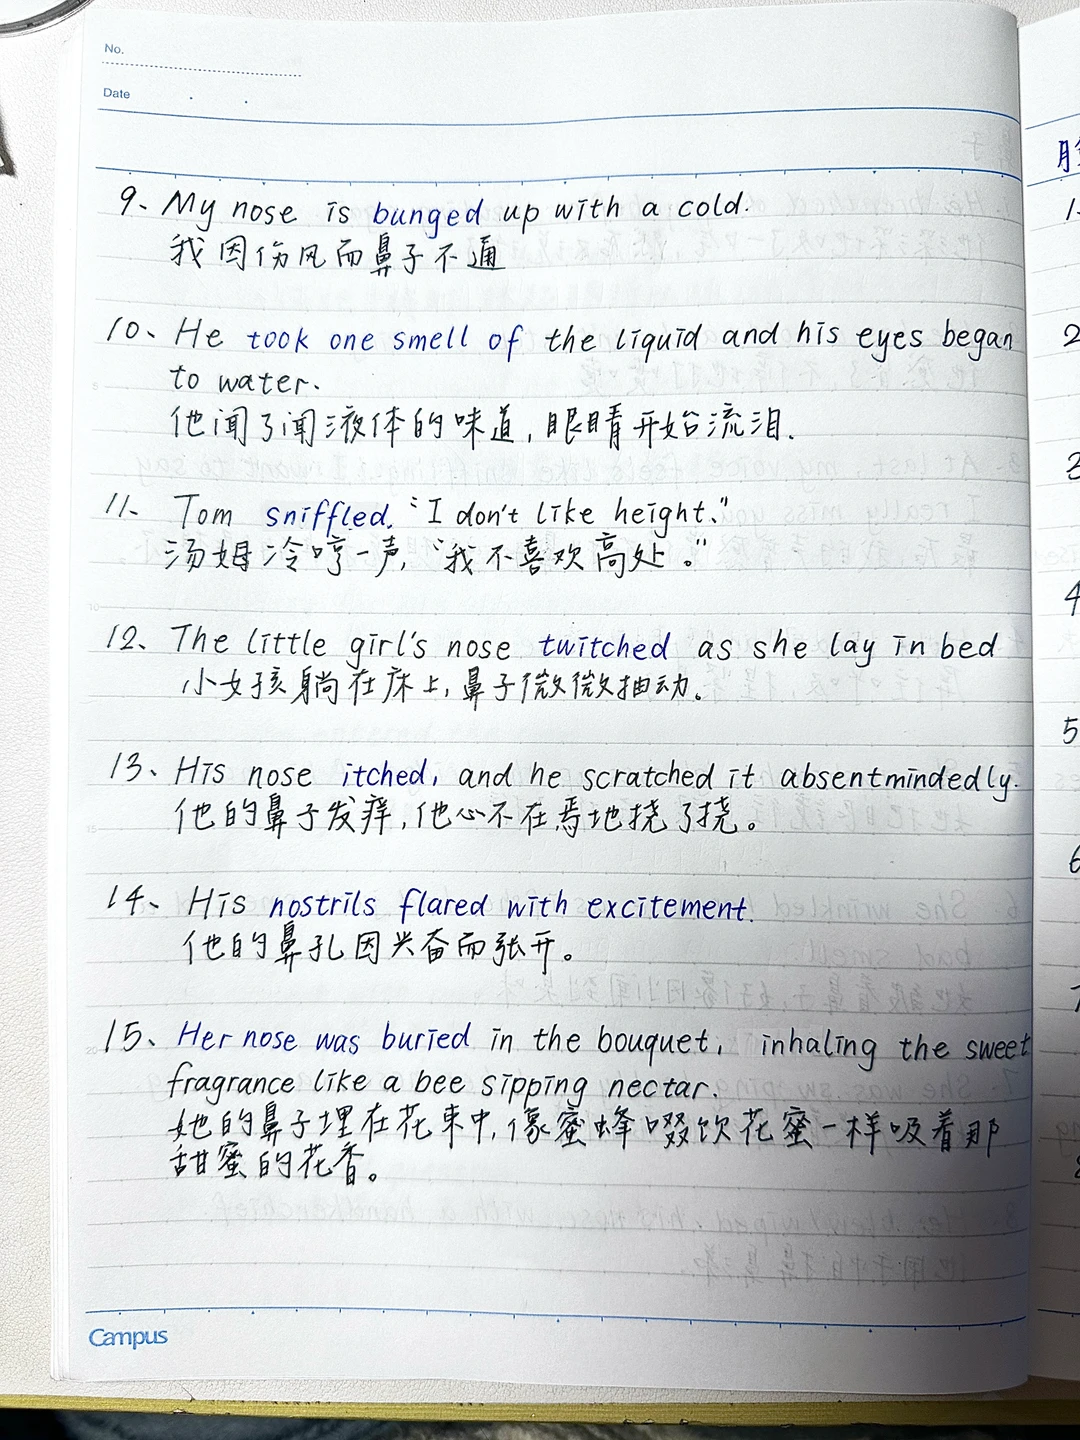 No.
Date
9、My nose is bunged up with a cold.
我因伤风而鼻子不通
10、He took one smell of the liquid and his eyes began
to water.
他闻了闻液体的味道,眼睛开始流泪.
11、Tom sniffled, "I don't like height."
汤姆冷哼一声,"我不喜欢高处。"
12、The little girl's nose twitched as she lay in bed
小女孩躺在床上,鼻子微微抽动。
13、His nose itched, and he scratched it absentmindedly.
他的鼻子发痒,他心不在焉地挠了挠。
14、His nostrils flared with excitement.
他的鼻孔因兴奋而张开。
15、Her nose was buried in the bouquet, inhaling the sweet
fragrance like a bee sipping nectar.
她的鼻子埋在花束中,像蜜蜂啜饮花蜜一样吸着那
甜蜜的花香。
Campus